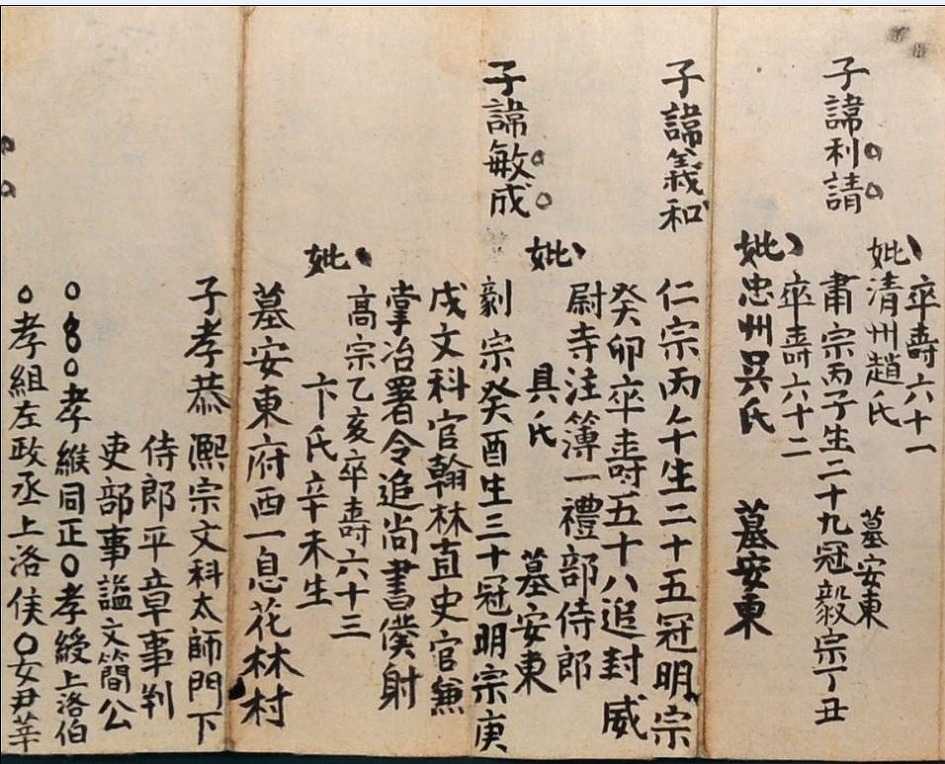 卒壽六十一
妣清州趙氏 墓安東
子諱利請
肅宗丙子生二十九冠毅宗丁丑
卒壽六十二
妣忠州吳氏 墓安東
子諱義和
仁宗丙午生二十五冠明宗
癸卯卒壽五十八追封威
尉寺注簿一禮部侍郎
妣具氏 墓安東
子諱敏成
宗癸酉生三十冠明宗庚
戌文科官翰林直史官兼
掌冶署令追尚書僕射
高宗乙亥卒壽六十三
妣卞氏辛未生
墓安東府西一息花林村
子孝恭熙宗文科太師門下
侍郎平章事判
吏部事謚文簡公
孝緱同正○孝綬上洛伯
○孝組左政丞上洛侯○女尹莘